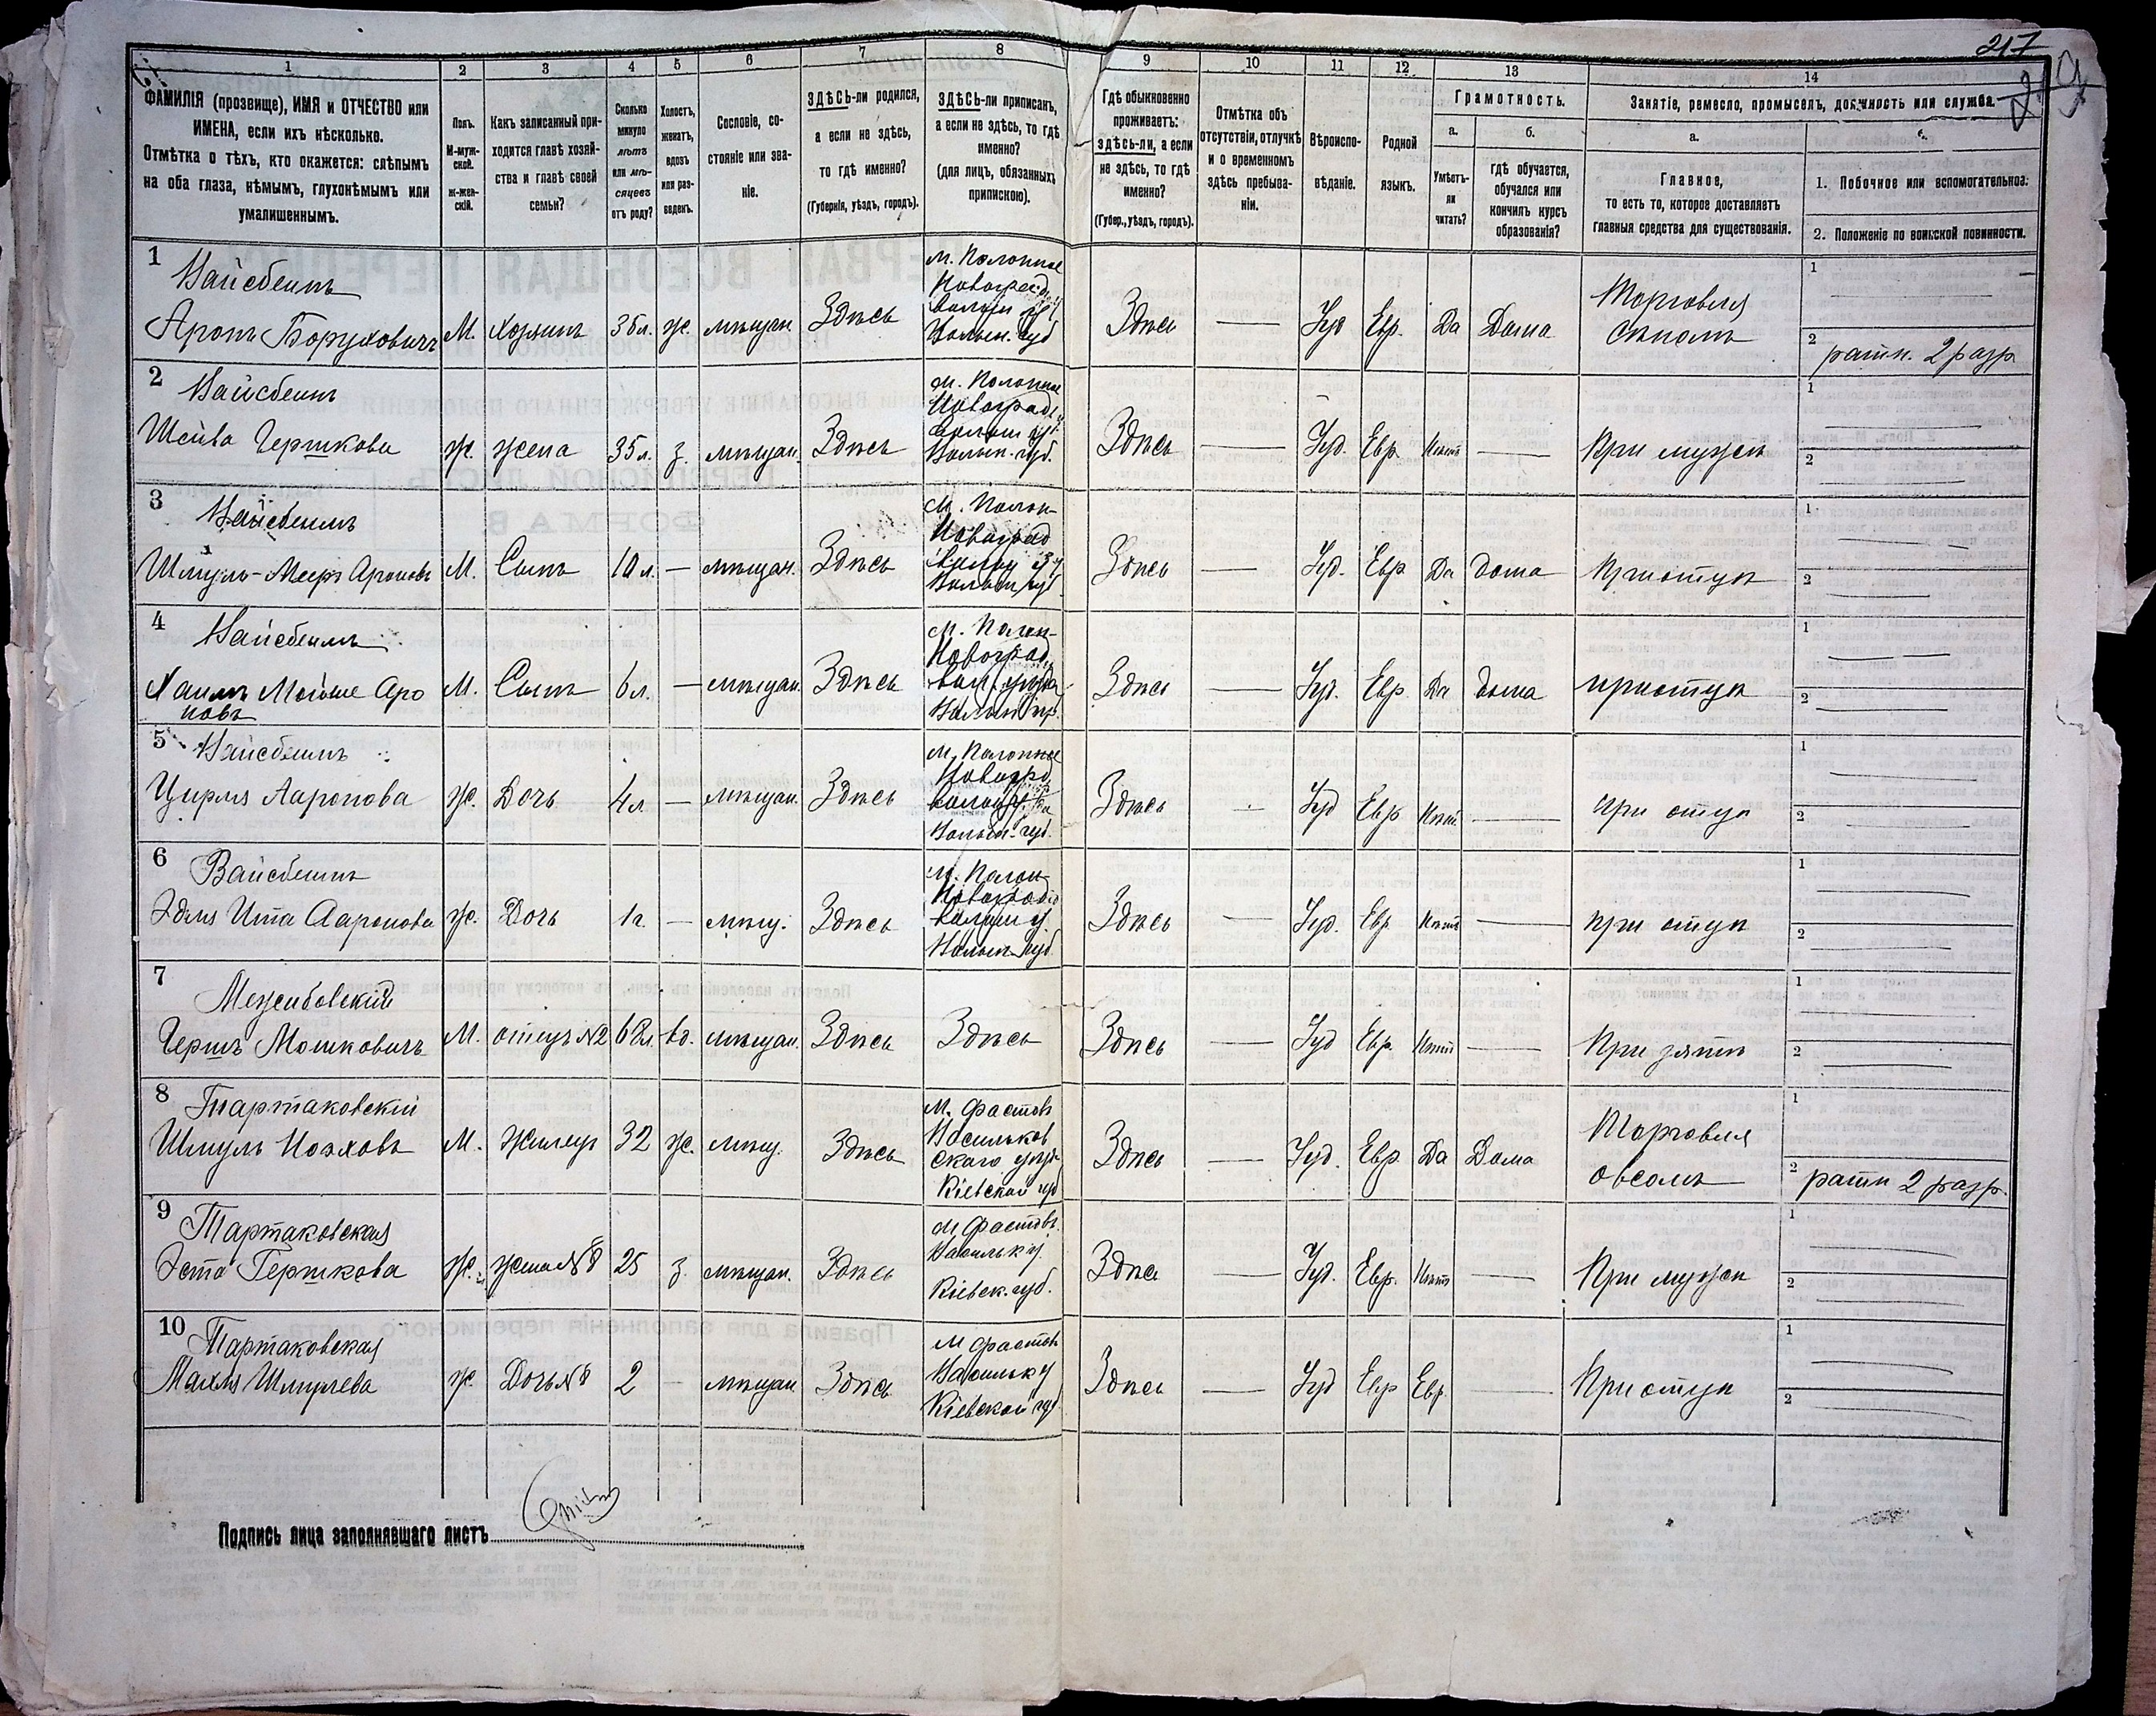 217
1
2
3
4
5
6
7
8
9
10
11
12
13
14
ФАМИЛІЯ (прозвище), ИМЯ и ОТЧЕСТВО или
ИМЕНА, если ихъ нѣсколько.
Отмѣтка о тѣхъ, кто окажется: слѣпымъ
на оба глаза, нѣмымъ, глухонѣмымъ или
умалишеннымъ.
Полъ.
М-муж-
ской.
Ж-жен-
скій.
Какъ записанный при-
ходится главѣ хозяй-
ства и главѣ своей
семьи?
Сколько
минуло
лѣтъ
или мѣ-
сяцевъ
отъ роду?
Холостъ,
женатъ,
вдовъ
или раз-
веденъ.
Сословіе, со-
стояніе или зва-
ніе.
ЗДѢСЬ-ли родился,
а если не здѣсь,
то гдѣ именно?
(Губернія, уѣздъ, городъ).
ЗДѢСЬ-ли приписанъ,
а если не здѣсь, то гдѣ
именно?
(для лицъ, обязанныхъ
припискою).
Гдѣ обыкновенно
проживаетъ:
здѣсь-ли, а если
не здѣсь, то гдѣ
именно?
(Губер., уѣздъ, городъ).
Отмѣтка объ
отсутствіи, отлучкѣ
и о временномъ
здѣсь пребыва-
ніи.
Вѣроиспо-
вѣданіе.
Родной
языкъ.
Грамотность.
а.
Умѣетъ-
ли
читать?
б.
Гдѣ обучается,
обучался или
кончилъ курсъ
образованія?
Занятіе, ремесло, промыселъ, должность или служба.
а.
Главное,
то есть то, которое доставляетъ
главныя средства для существованія.
1. Побочное или вспомогательное.
2. Положеніе по воинской повинности.
1
Вайсбеинъ
Аронъ Боруховичъ
М.
Хозяинъ
36 л.
ж.
мѣщан.
Здѣсь
м. Полонное
Новоград
Волын. губ
Здѣсь
—
Іуд
Евр.
Да
Дома
Торговля
сѣномъ
1
2
ратн. 2 разр
2
Вайсбеинъ
Шейва Гершкова
Ж.
жена
35 л.
з.
мѣщан.
Здѣсь
м. Полонное
Новоград
Волын. губ.
Здѣсь
—
Іуд.
Евр.
Нѣтъ
—
При мужѣ
1
2
3
Вайсбеимъ
Шмуль-Меер Ароновъ
М.
Сынъ
10 л.
—
мѣщан.
Здѣсь
м. Полон-
Новоград
Здѣсь
—
Іуд.
Евр
Да
дома
При отцѣ
1
2
4
Вайсбеимъ
Хаимъ Мойше Аро
новъ
М.
Сынъ
6 л.
—
мѣщан.
Здѣсь
м. Полон-
Новоград
Здѣсь
—
Іуд.
Евр.
Да
дома
при отцѣ
1
2
5
Вайсбеинъ
Цирля Ааронова
Ж.
Дочь
4 л
—
мѣщан.
Здѣсь
м. Полонное
Волын. губ.
Здѣсь
—
Іуд
Евр
Нѣт.
—
при отцѣ
1
2
6
Вайсбеинъ
Эдля Ита Ааронова
Ж.
Дочь
1 г.
—
мѣщ.
Здѣсь
м. Полон-
Волын. губ.
Здѣсь
—
Іуд.
Евр
Нѣтъ
—
при отцѣ
1
2
7
Межибовскій
Гершъ Мошковичъ
М.
отецъ №2
62 л.
вд.
мѣщан.
Здѣсь
Здѣсь
Здѣсь
—
Іуд
Евр.
Нѣтъ
—
При зятѣ
1
2
8
Тартаковскій
Шмуль Ноэховъ
М.
Жилец
32
ж.
мѣщ.
Здѣсь
м. Фастовъ
Васильков
скаго уѣзд
Кіевской губ
Здѣсь
—
Іуд.
Евр.
Да
Дома
Торговля
овсомъ
1
2
ратн 2 разр.
9
Тартаковская
Эста Гершкова
Ж.
жена №8
25
з.
мѣщан.
Здѣсь
м. Фастовъ
Васильк у.
Кіевск. губ.
Здѣсь
—
Іуд.
Евр.
Нѣтъ
—
При мужѣ
1
2
10
Тартаковская
Махля Шмулева
Ж.
Дочь №8
2
—
мѣщан
Здѣсь
м Фастовъ
Васильк у
Кіевской губ
Здѣсь
—
Іуд
Евр
Евр.
—
При отцѣ
1
2
Подпись лица заполнявшаго листъ